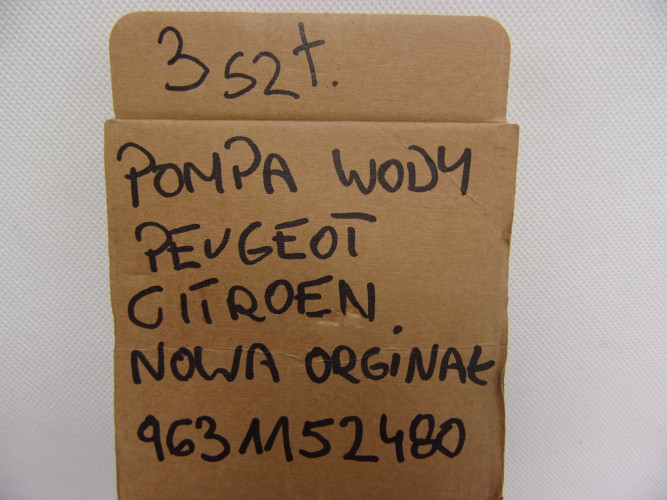 3 szt.
POMPA WODY
PEUGEOT
CITROEN
NOWA ORGINAŁ
9631152480